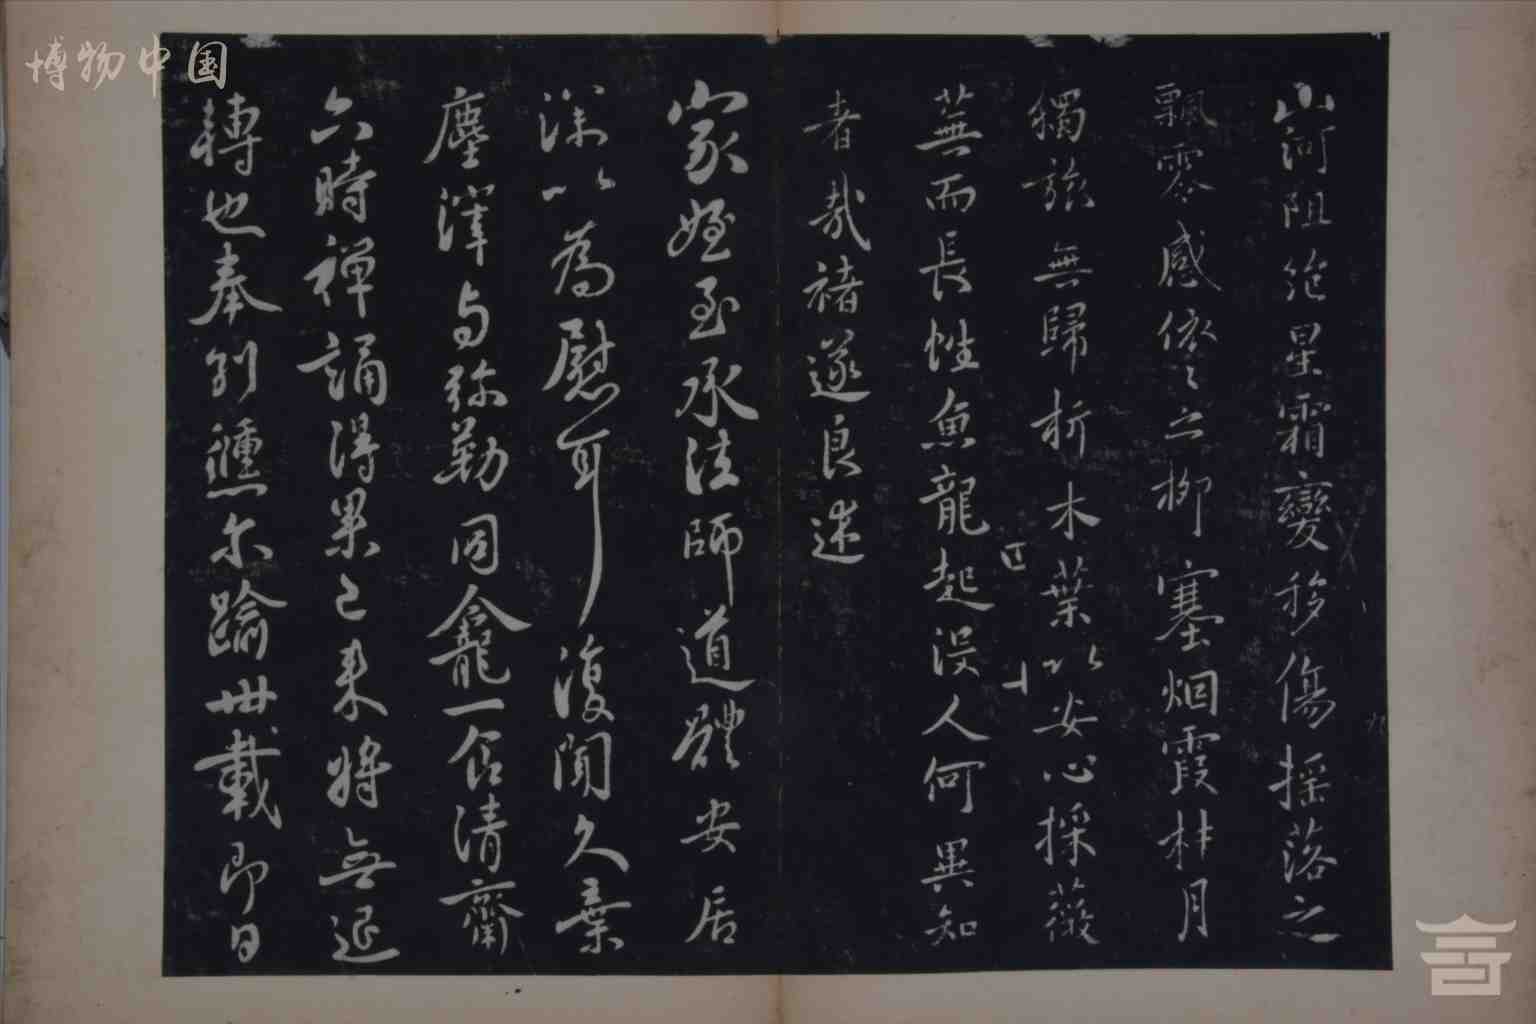 博物中国
山河阻絶星霜變移傷揺落之
飄零感依々之柳塞烟霞桂月
獨旅無歸折木葉以安心採薇
蕪而長性魚龍起没人何異知
者哉褚遂良述
家姪至承法師道體安居
深以為慰耳復聞久棄
塵滓与弥勒同龕一食清齋
六時禪誦得果已来將無退
轉也奉別倐尓踰卌載即日